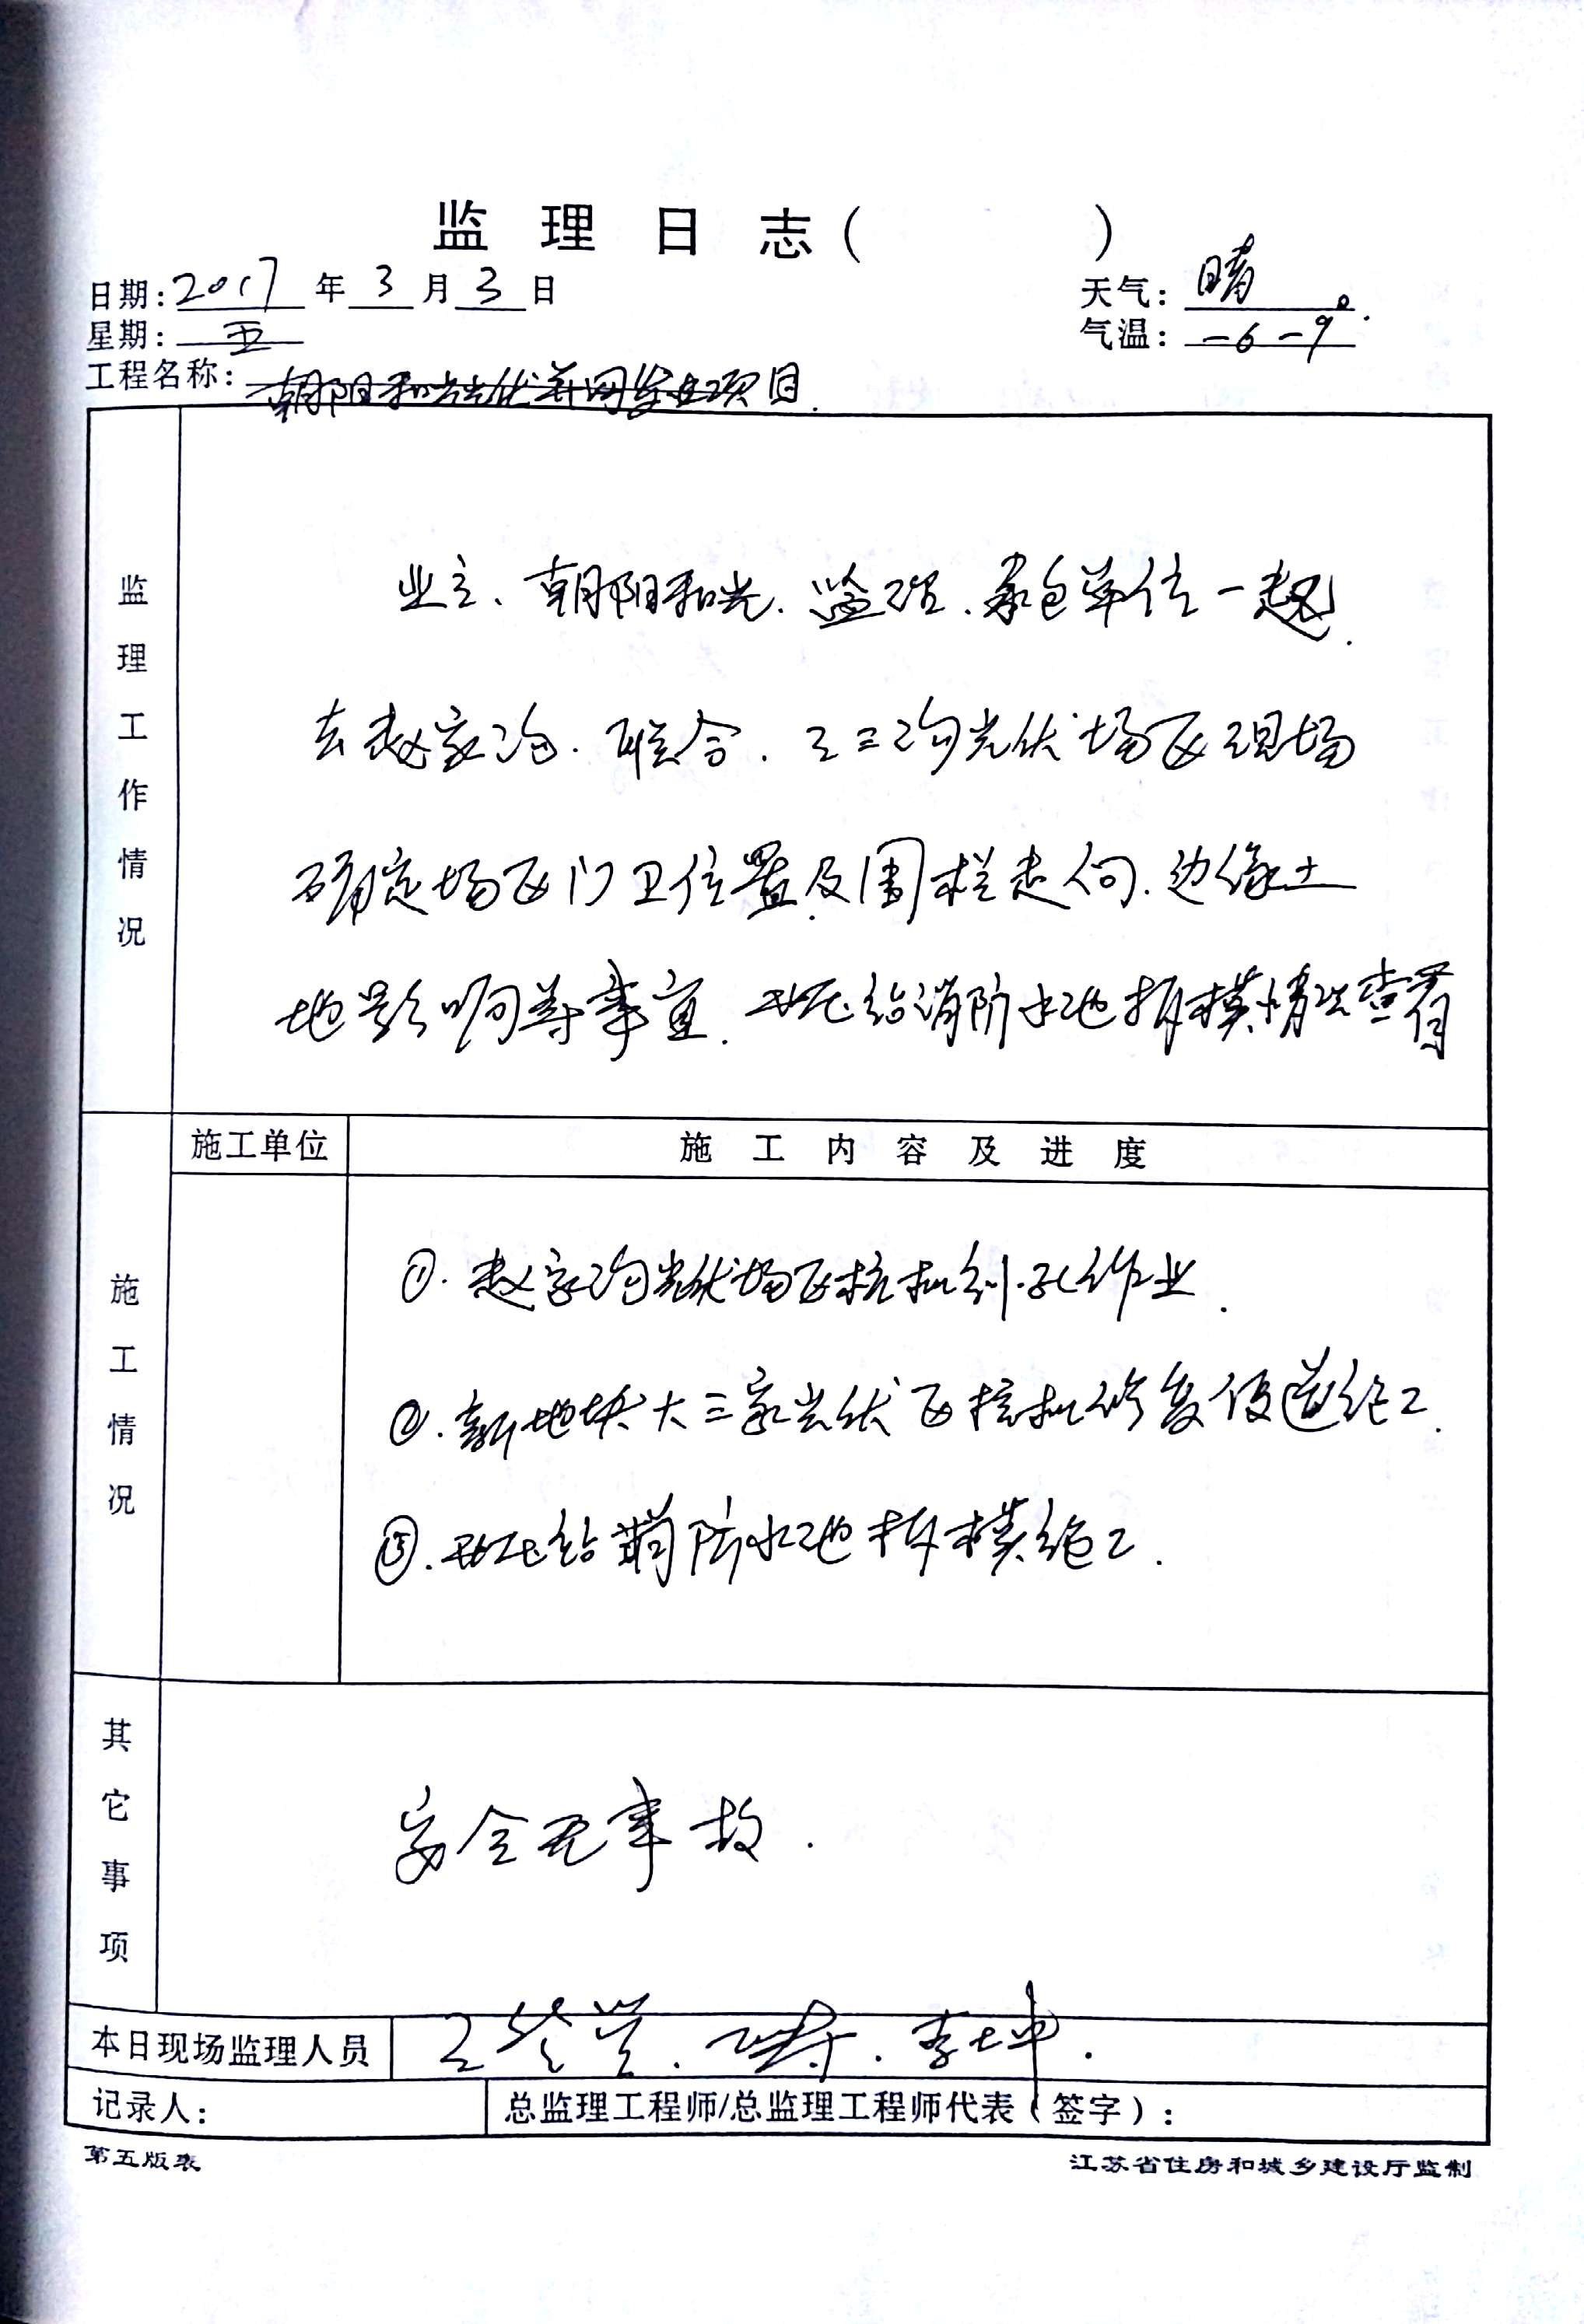 监理日志（　　　）
日期：2017 年 3 月 3 日
天气：晴。
星期：五
气温：-6-9
工程名称：朝阳和光光伏并网发电项目.
监理工作情况
业主、朝阳和光、监理、承包单位一起
去赵家沟、联合、王三沟光伏场区现场
确定场区门卫位置及围栏走向、边缘土
地影响等事宜. 站消防水池拆模情况查看
施工情况
施工单位
施工内容及进度
①. 赵家沟光伏场区桩机引孔作业.
②. 新地块大三家光伏区桩机修复便道施工.
③. 站消防水池拆模施工.
其它事项
安全无事故.
本日现场监理人员
李士坤.
记录人：
总监理工程师/总监理工程师代表（签字）：
第五版表
江苏省住房和城乡建设厅监制